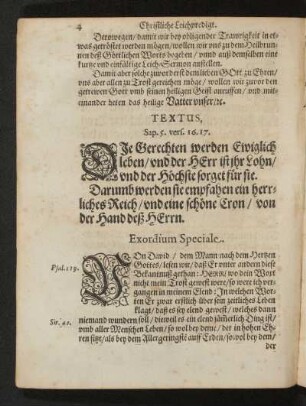 4 Christliche Leichpredigt.
Derowegen/ damit wir bey obligender Traurigkeit in et-
was getröstet werden mögen/ wollen wir uns zu dem Heilbrun-
nen deß Göttlichen Worts begeben/ vnnd auß demselben eine
kurtze vnd einfältige Leich-Sermon anstellen.
Damit aber solche zu vorderst dem lieben GOtt zu Ehren/
vns aber allen zu Trost gereichen möge/ wollen wir zuvor den
getrewen Gott vmb seinen heiligen Geist anruffen/ vnd mit-
einander beten das heilige Vatter vnser/ec.
TEXTUS,
Sap. 5. vers. 16. 17.
DIe Gerechten werden Ewiglich
leben/ vnd der HErr ist jhr Lohn/
vnd der Höchste sorget für sie.
Darumb werden sie empfahen ein herr-
liches Reich/ vnd eine schöne Cron/ von
der Hand deß HErrn.
Exordium Speciale.
VOn David/ dem Mann nach dem Hertzen
Gottes/ lesen wir/ daß Er vnter andern diese
Psal. 119. Bekantnuß gethan: HERR/ wo dein Wort
nicht mein Trost gewest were/ so were ich ver-
gangen in meinem Elend: In welchen Wor-
ten Er zwar erstlich über sein zeitliches Leben
klagt/ daß es sey elend gewest/ welches dann
Sir. 40. niemand wundern soll/ dieweil es ein elend jämmerlich Ding ist/
vmb aller Menschen Leben/ so wol bey dem/ der in hohen Eh-
ren sitzt/ als bey dem Allergeringste auff Erden/ so wol bey dem/
der